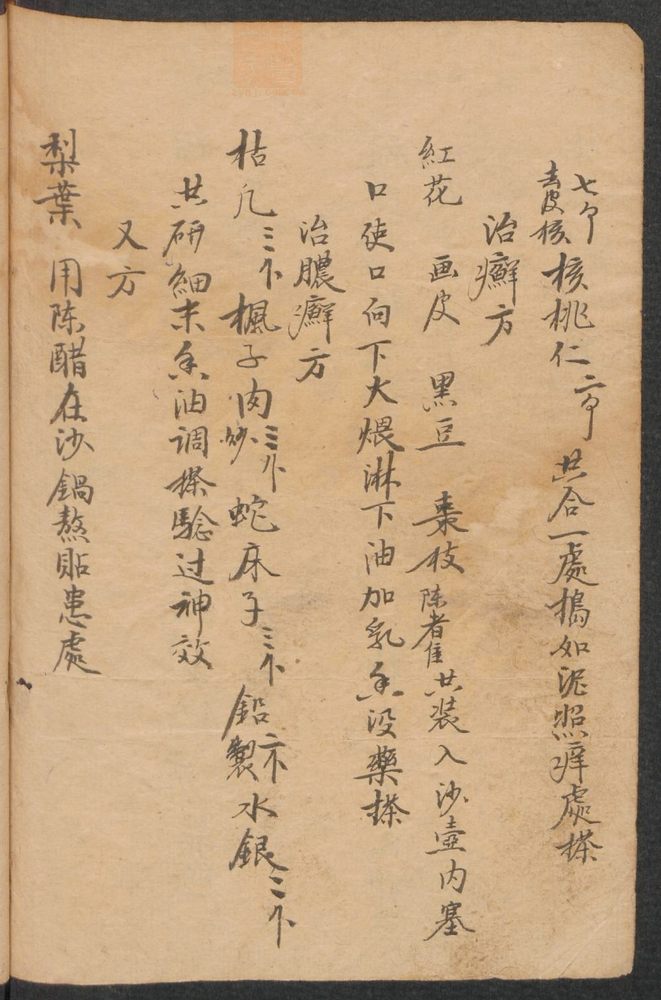 七个去皮核核桃仁二个共合一處搗如泥照痒處搽
治癬方
紅花 画皮 黑豆 棗枝陈者佳共装入沙壺内塞
口使口向下大煨淋下油加乳香没藥搽
治膿癬方
枯凡三 楓子肉炒三 蛇床子三 鉛製水銀二
共研細末香油调搽騐过神效
又方
梨葉 用陈醋在沙鍋熬貼患處